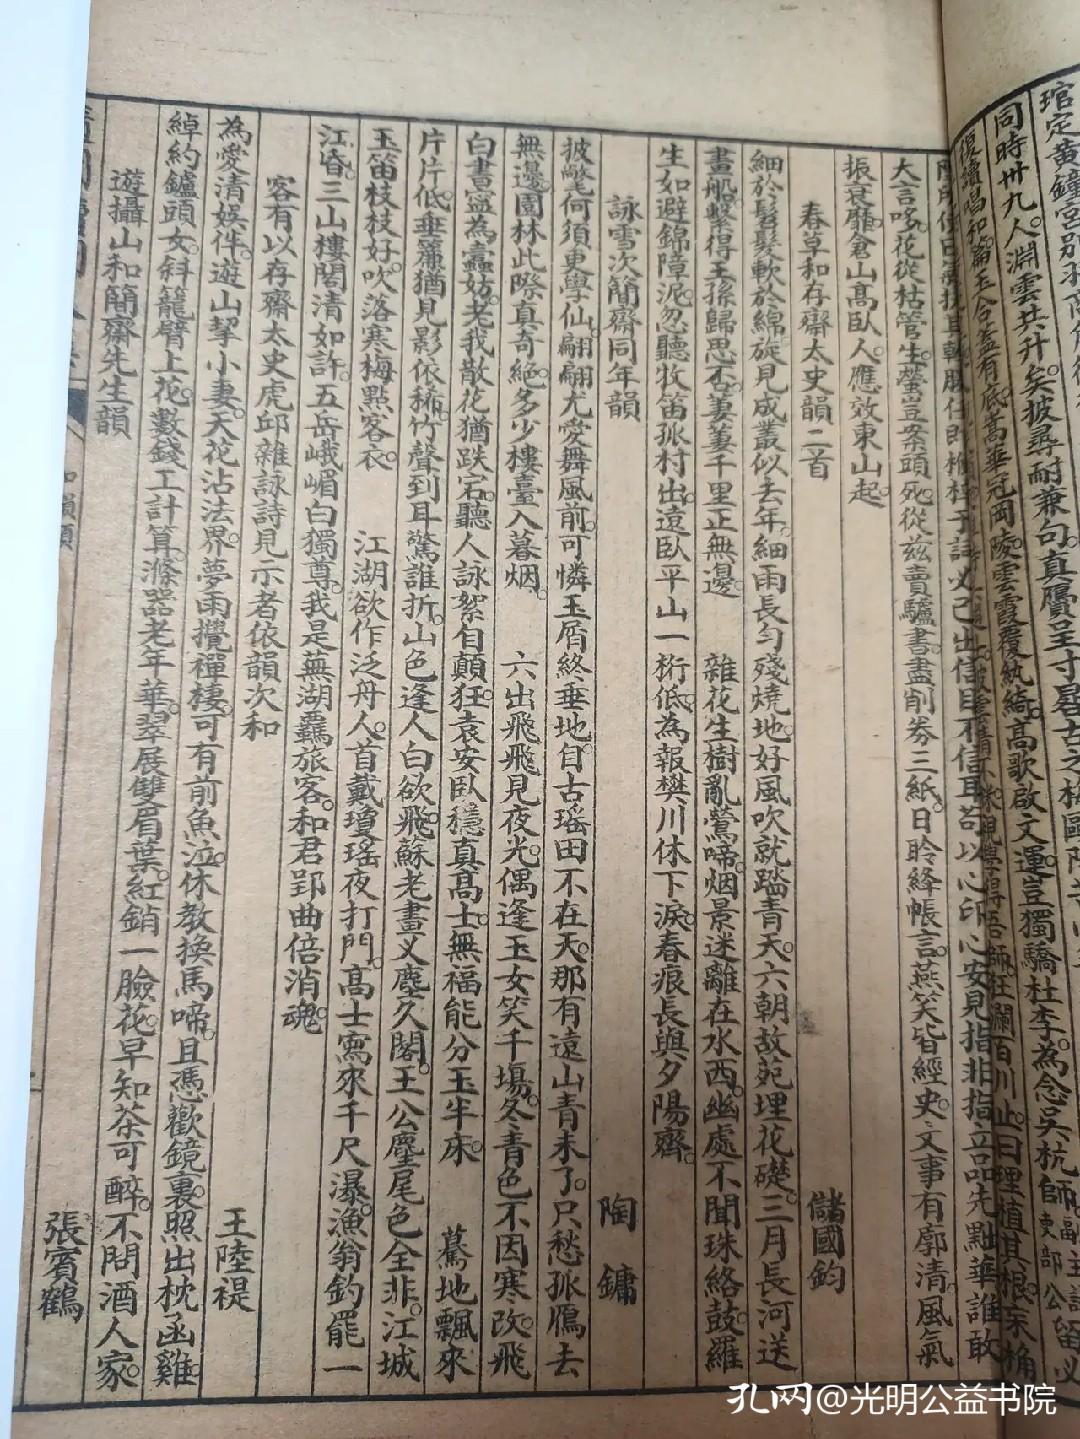 同時卅九人淵雲共升矣披尋耐兼句真贋呈寸晷古之
復續唱和篇玉合蓋有底嵩華冠岡陵雲霞覆紈綺高歌啟文運豈獨驕杜李為念吳杭師
大言哆花從枯管生螢豈案頭死從茲賣驢書盡削券三紙日聆絳帳言燕笑皆經史文事有廓清風氣
振衰靡倉山高臥人應效東山起
春草和存齋太史韻二首 儲國鈞
細於髩髮軟於綿旋見成叢似去年細雨長勻殘燒地好風吹就踏青天六朝故苑埋花礎三月長河送
畫船繫得王孫歸思否萋萋千里正無邊 雜花生樹亂鶯啼烟景迷離在水西幽處不聞珠絡鼓羅
生如避錦障泥忽聽牧笛孤村出遠臥平山一桁低為報樊川休下淚春痕長與夕陽齊
詠雪次簡齋同年韻 陶鏞
披氅何須更學仙翩翩尤愛舞風前可憐玉屑終垂地自古瑤田不在天那有遠山青未了只愁孤鴈去
無邊園林此際真奇絕多少樓臺入暮烟 六出飛飛見夜光偶逢玉女笑千場冬青色不因寒改飛
白書寧為蠹妨老我散花猶跌宕聽人詠絮自顛狂袁安臥穩真高士無福能分玉半床 驀地飄來
片片低垂簾猶見影依稀竹聲到耳驚誰折山色逢人白欲飛蘇老畫叉塵久閣王公麈尾色全非江城
玉笛枝枝好吹落寒梅點客衣 江湖欲作泛舟人首戴瓊瑤夜打門高士寫來千尺瀑漁翁釣罷一
江昏三山樓閣清如許五岳峨嵋白獨尊我是蕪湖羈旅客和君郢曲倍消魂
客有以存齋太史虎邱雜詠詩見示者依韻次和 王陸禔
為愛清娛伴遊山挈小妻天花沾法界夢雨攪禪棲可有前魚泣休教換馬啼且憑歡鏡裏照出枕函雞
綽約鑪頭女斜籠臂上花數錢工計算滌器老年華翠展雙眉葉紅銷一臉花早知茶可醉不問酒人家
遊攝山和簡齋先生韻 張賓鶴
孔网@光明公益书院